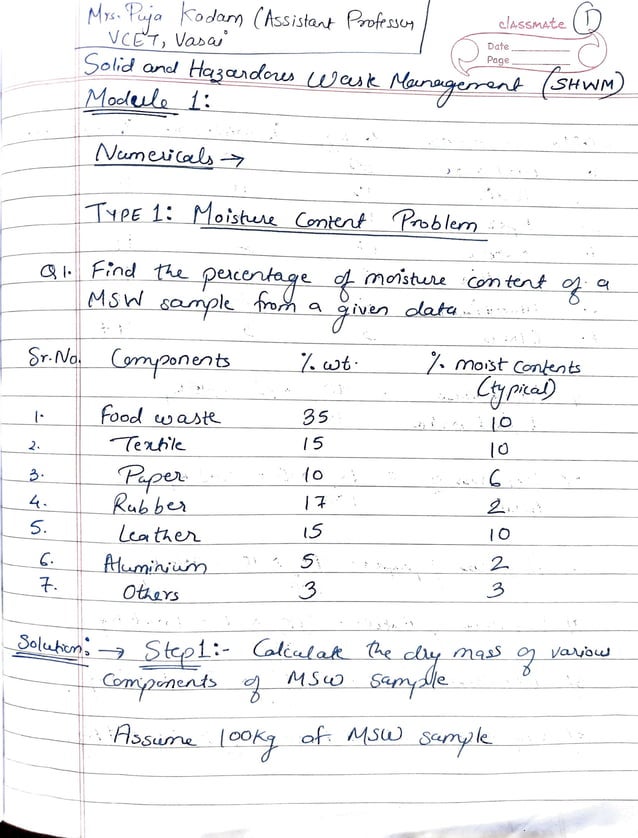 Mrs. Puja Kadam (Assistant Professor
VCET, Vasai
classmate
1
Date
Page
Solid and Hazardous Waste Management (SHWM)
Module 1:
Numericals →
TYPE 1: Moisture Content Problem
Q1. Find the percentage of moisture content of a
MSW sample from a given data.
Sr.No. Components % wt. % moist contents
(typical)
1. Food waste 35 10
2. Textile 15 10
3. Paper 10 6
4. Rubber 17 2
5. Leather 15 10
6. Aluminium 5 2
7. Others 3 3
Solution: → Step1:- Calculate the dry mass of various
Components of MSW sample
Assume 100kg of MSW sample